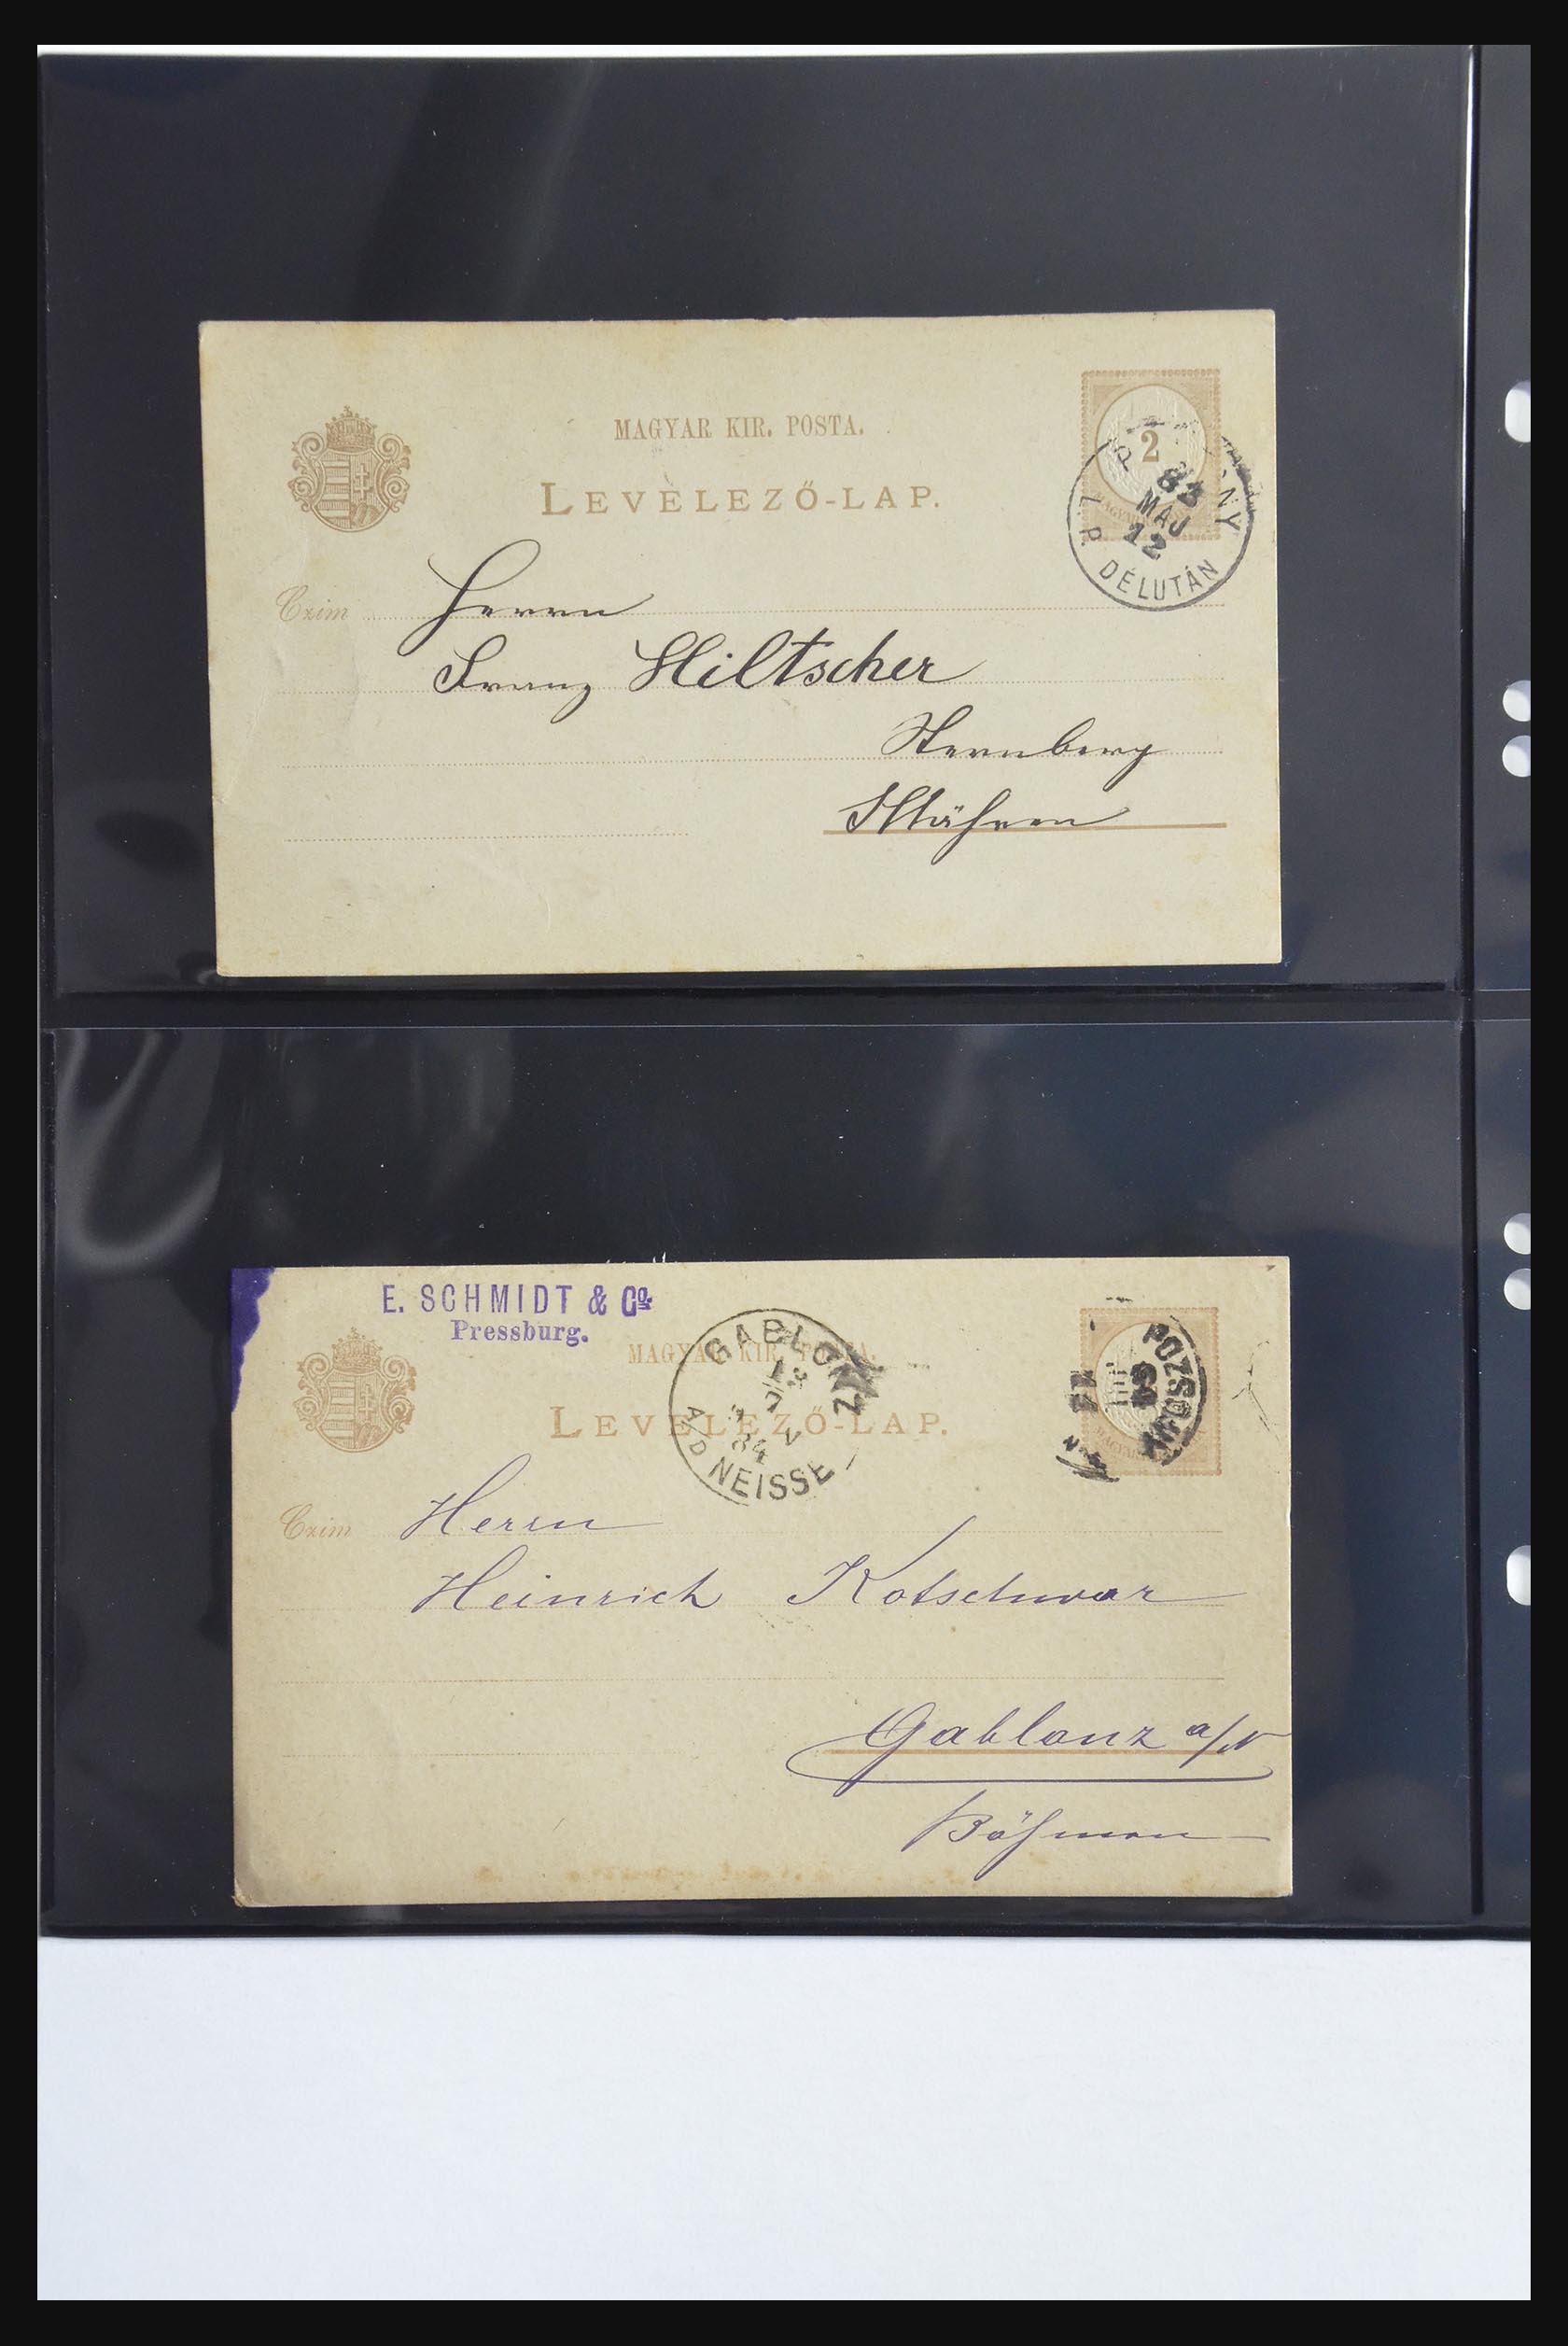 MAGYAR KIR. POSTA.
LEVELEZŐ-LAP.
2
83
MAJ
12
I. P. DÉLUTÁN
Czim Herrn
Franz Hiltscher
Sternberg
Mähren
E. SCHMIDT & Co.
Pressburg.
MAGYAR KIR. POSTA.
LEVELEZŐ-LAP.
GABLONZ
84
A/D NEISSE
POZSONY
Czim Herrn
Heinrich Kotschwar
Gablonz a/N
Böhmen